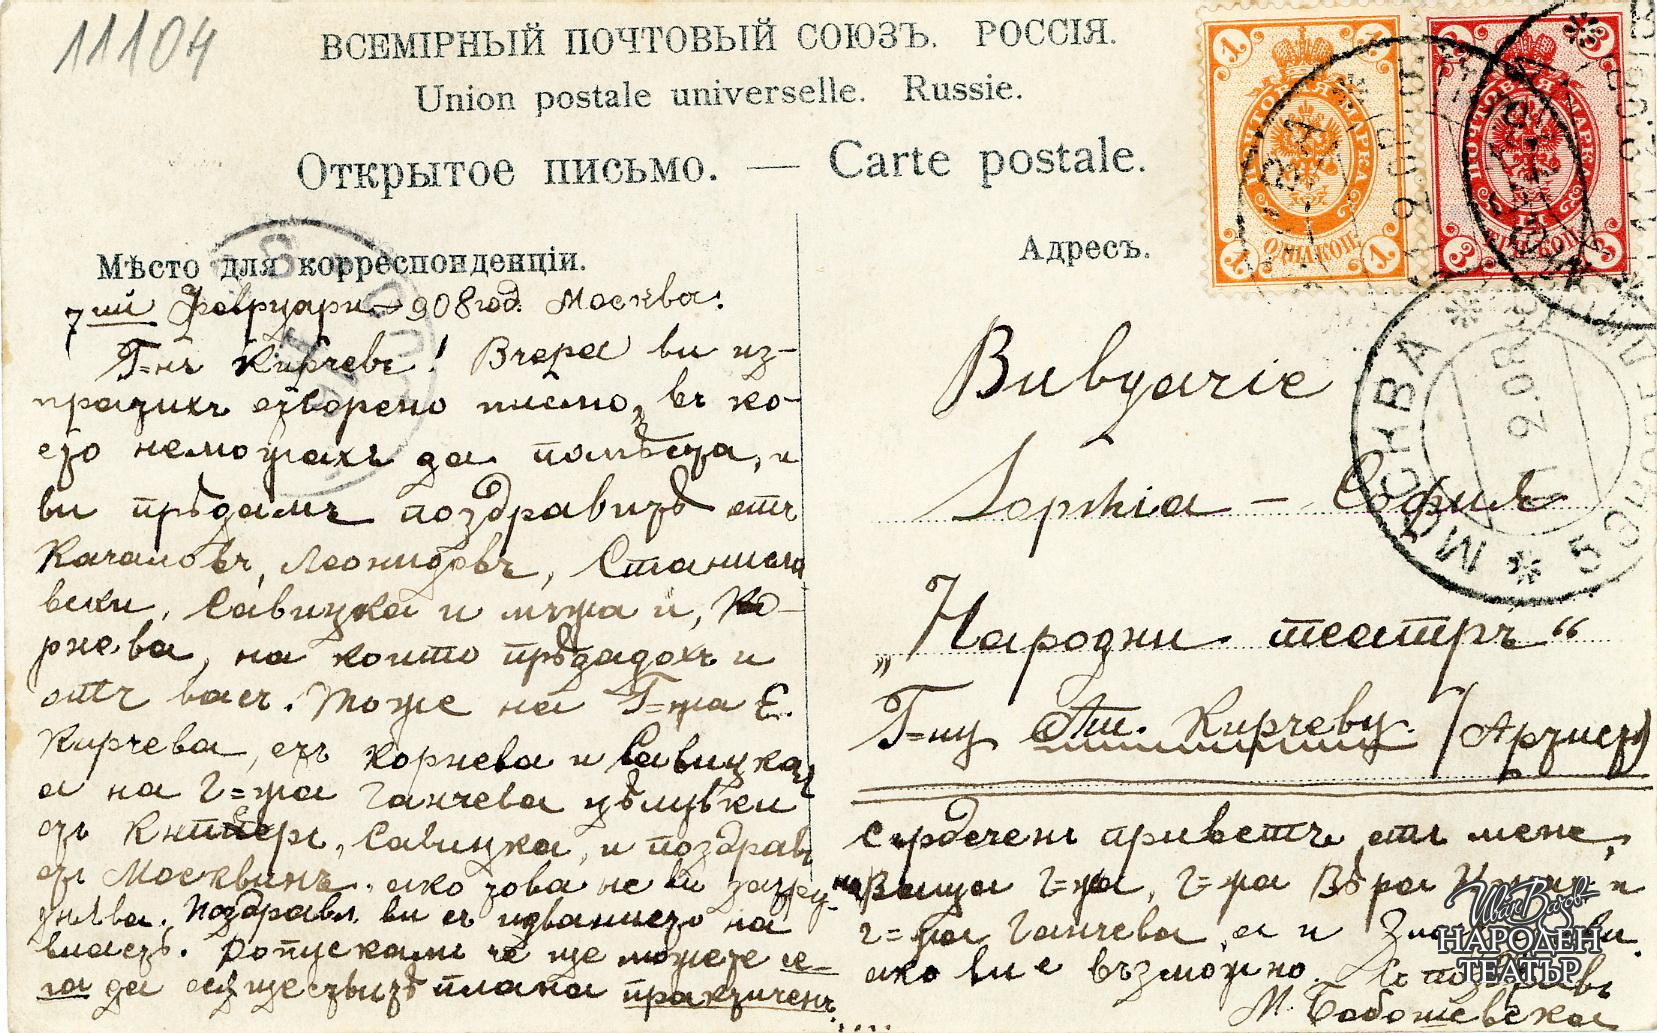 11104
ВСЕМІРНЫЙ ПОЧТОВЫЙ СОЮЗЪ. РОССІЯ.
Union postale universelle. Russie.
Открытое письмо. — Carte postale.
Мѣсто для корреспонденціи.
7ий Февруари - 908 год. Москва.
Г-нъ Кирчевъ! Вчера ви из-
пратихъ отворено писмо, въ ко-
ето неможахъ да помѣстя, и
ви прѣдамъ поздравитѣ отъ
Качаловъ, Леонидовъ, Станисла
вски, Савицка и мѫжа и, Ко-
рнева, на които прѣдадохъ и
отъ васъ. Тоже на Г-жа Е.
Кирчева, отъ Корнева и Савицка,
а на г-жа Ганчева цѣлувки
отъ Книперъ, Савицка, и поздрав
отъ Москвинъ, ако това не ви затру-
днява. Поздравл. ви съ идванието на
власть. Допускамъ че ще можете се-
га да осѫществитѣ плана практиченъ....
Адресъ.
Bulgarie
Sophia - София
„Народни театръ“
Г-ну Ат. Кирчеву. (Артистъ)
Сърдеченъ приветъ отъ мене,
на Ваща г-жа, г-жа Вѣра и
г-жа Ганчева, а и
ако ви е възможно. Съ поздравъ
М. Бобошевска
1
1
1
1
ПОЧТОВАЯ МАРКА
ОДНА КОП.
3
3
3
3
ПОЧТОВАЯ МАРКА
ТРИ КОП.
МОСКВА
Иван Вазов
НАРОДЕН
ТЕАТЪР